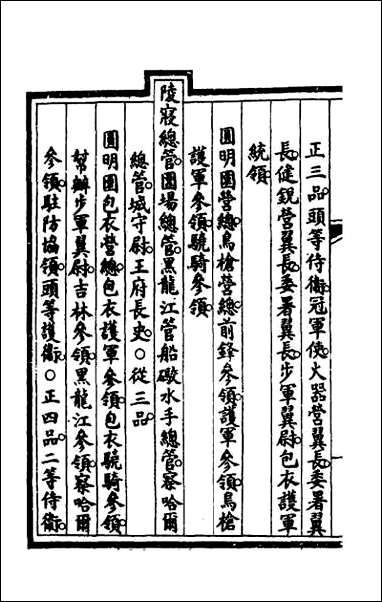 正三品頭等侍衛冠軍使火器營翼長委署翼
長健銳營翼長委署翼長步軍翼尉包衣護軍
統領
圓明園營總鳥槍營總前鋒叅領護軍叅領鳥槍
護軍叅領驍騎叅領
陵寢總管圍場總管黑龍江管船礮水手總管察哈爾
總管城守尉王府長史○從三品
圓明園包衣營總包衣護軍叅領包衣驍騎叅領
幫辦步軍翼尉吉林叅領黑龍江叅領察哈爾
叅領駐防協領頭等護衛○正四品二等侍衛